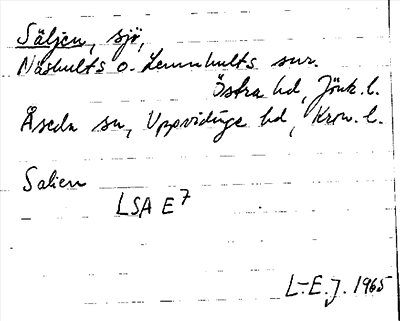 Säljen, sjö,
Näshults o. Lemnhults snr.
Östra hd, Jönk. l.
Åseda sn, Uppvidinge hd, Kron. l.
Salien
LSA E7
L.-E. J. 1965